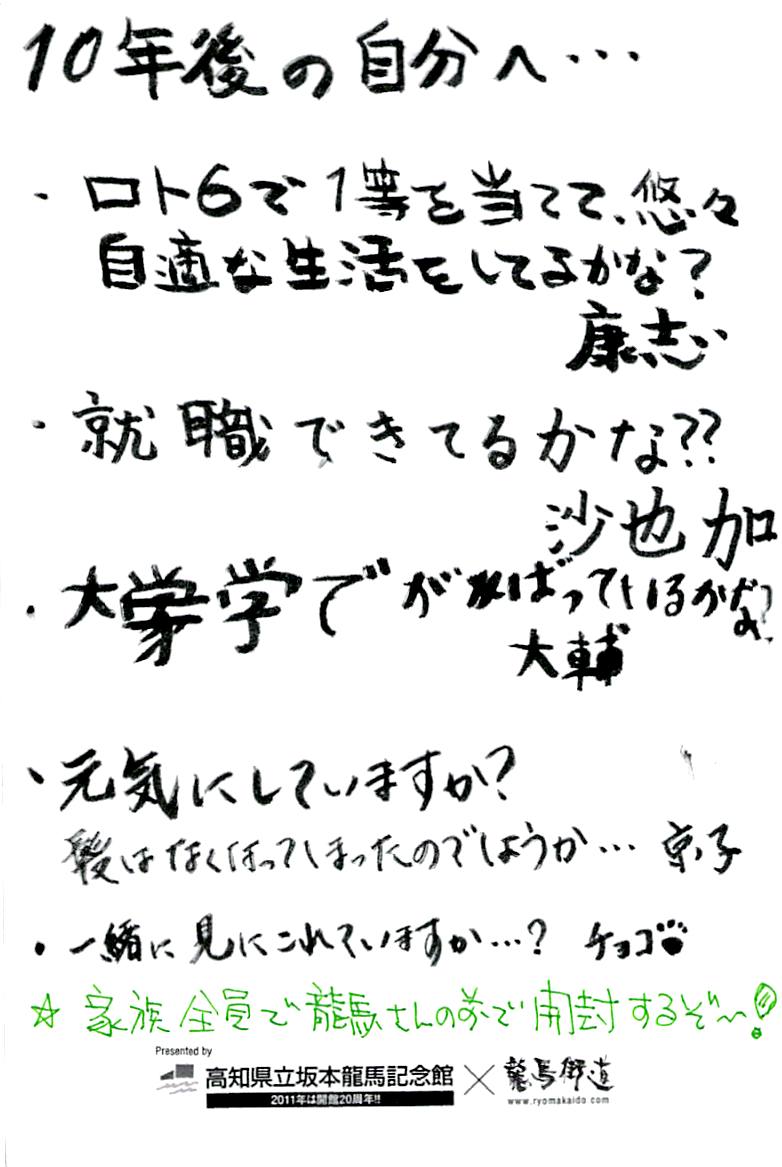 10年後の自分へ…
・ロト6で1等を当てて、悠々
自適な生活をしてるかな？
康志
・就職できてるかな??
沙也加
・大学でがんばっているかな？
大輔
・元気にしていますか？
髪はなくなってしまったのでしょうか… 京子
・一緒に見にこれていますか…？ チョコ
☆ 家族全員で龍馬さんの前で開封するぞ〜！
Presented by
高知県立坂本龍馬記念館 × 龍馬街道
2011年は開館20周年!!
www.ryomakaido.com